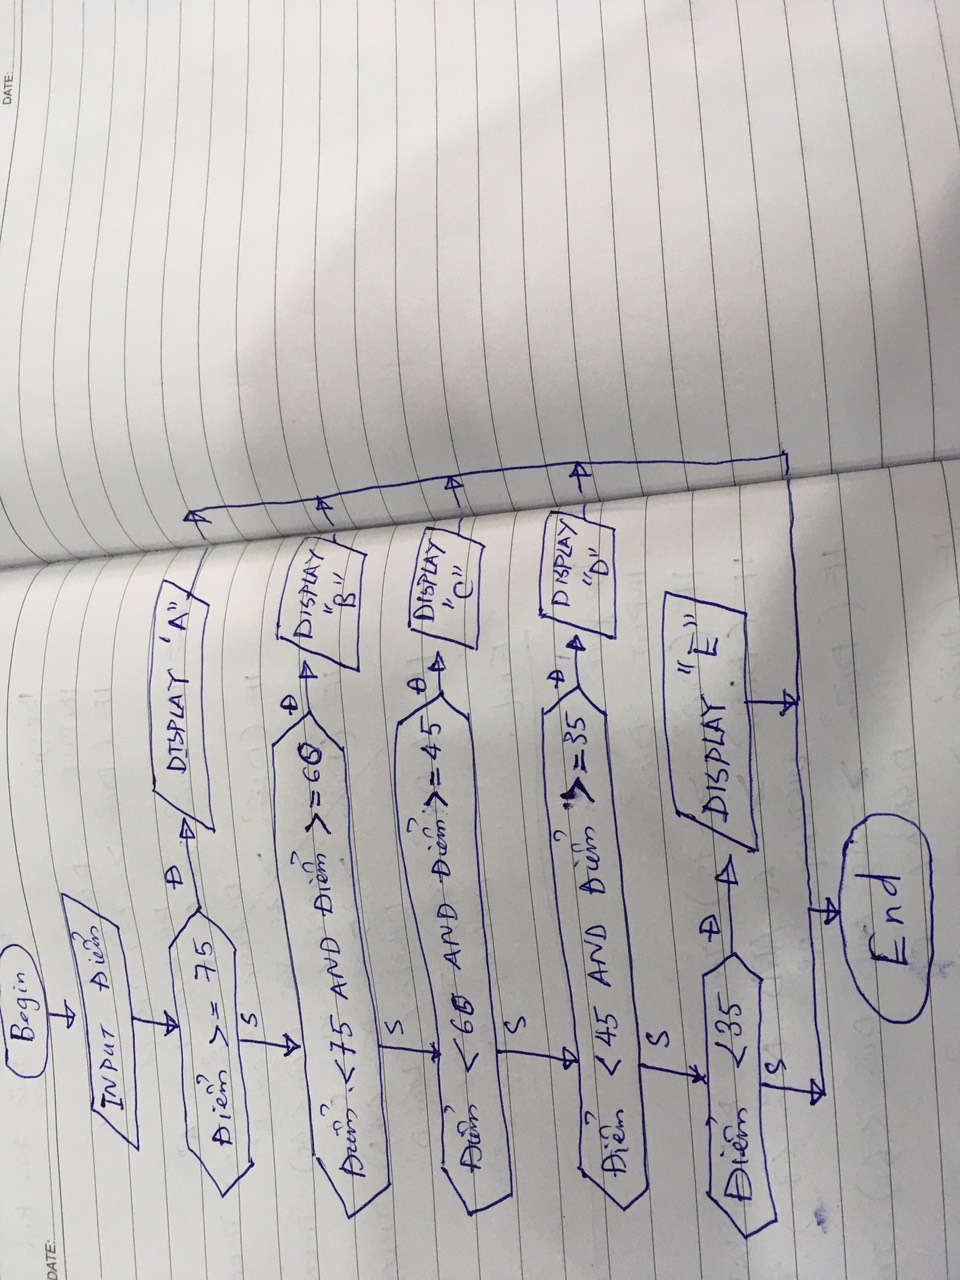 DATE:
DATE:
Begin
INPUT Điểm
Điểm >= 75
Đ
DISPLAY 'A"
S
Điểm <75 AND Điểm >=60
Đ
DISPLAY
"B"
S
Điểm <60 AND Điểm >=45
Đ
DISPLAY
"C"
S
Điểm <45 AND Điểm >=35
Đ
DISPLAY
"D"
S
Điểm <35
Đ
DISPLAY "E"
S
End